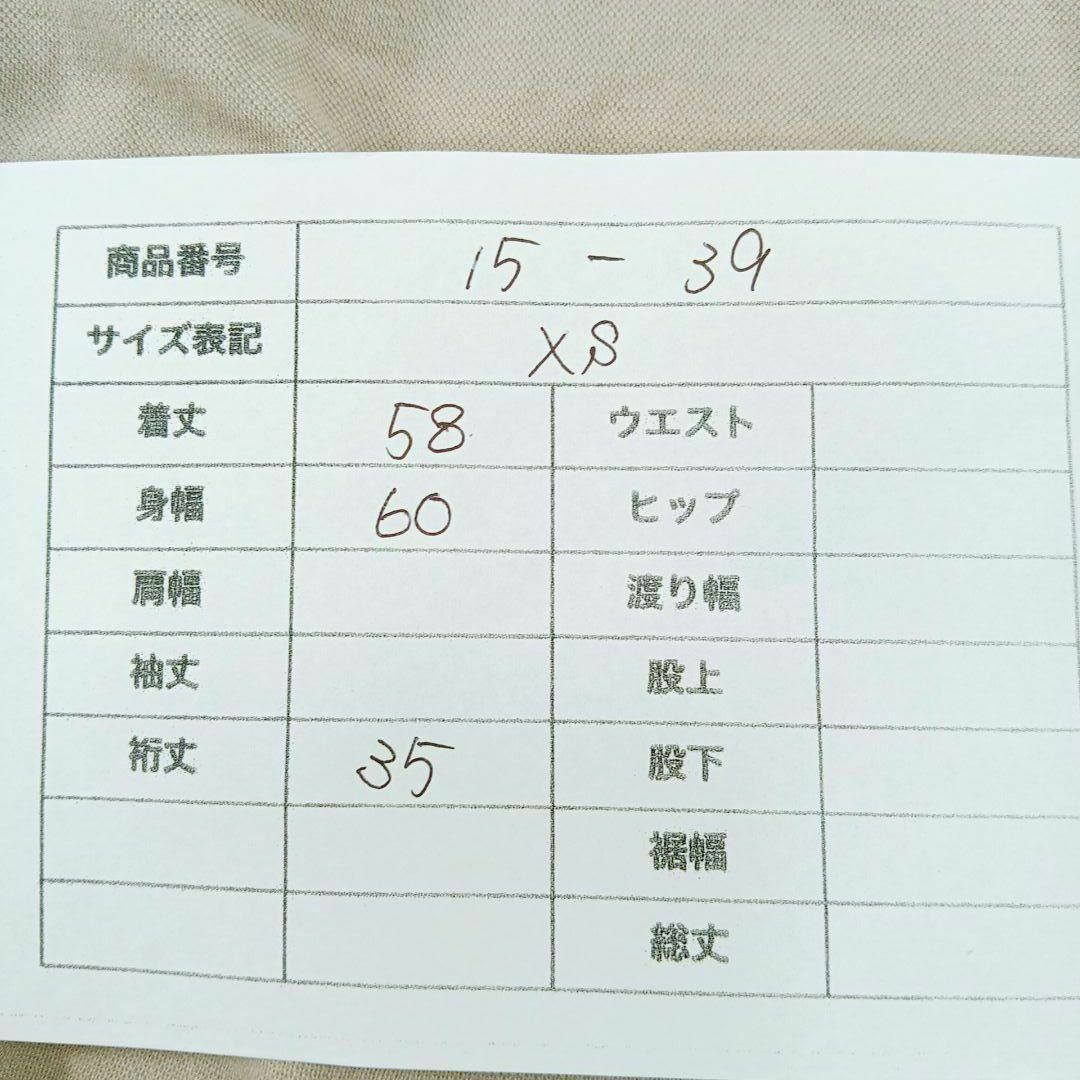 商品番号 15 - 39
サイズ表記 XS
着丈 58 ウエスト
身幅 60 ヒップ
肩幅 渡り幅
袖丈 股上
裄丈 35 股下
裾幅
総丈